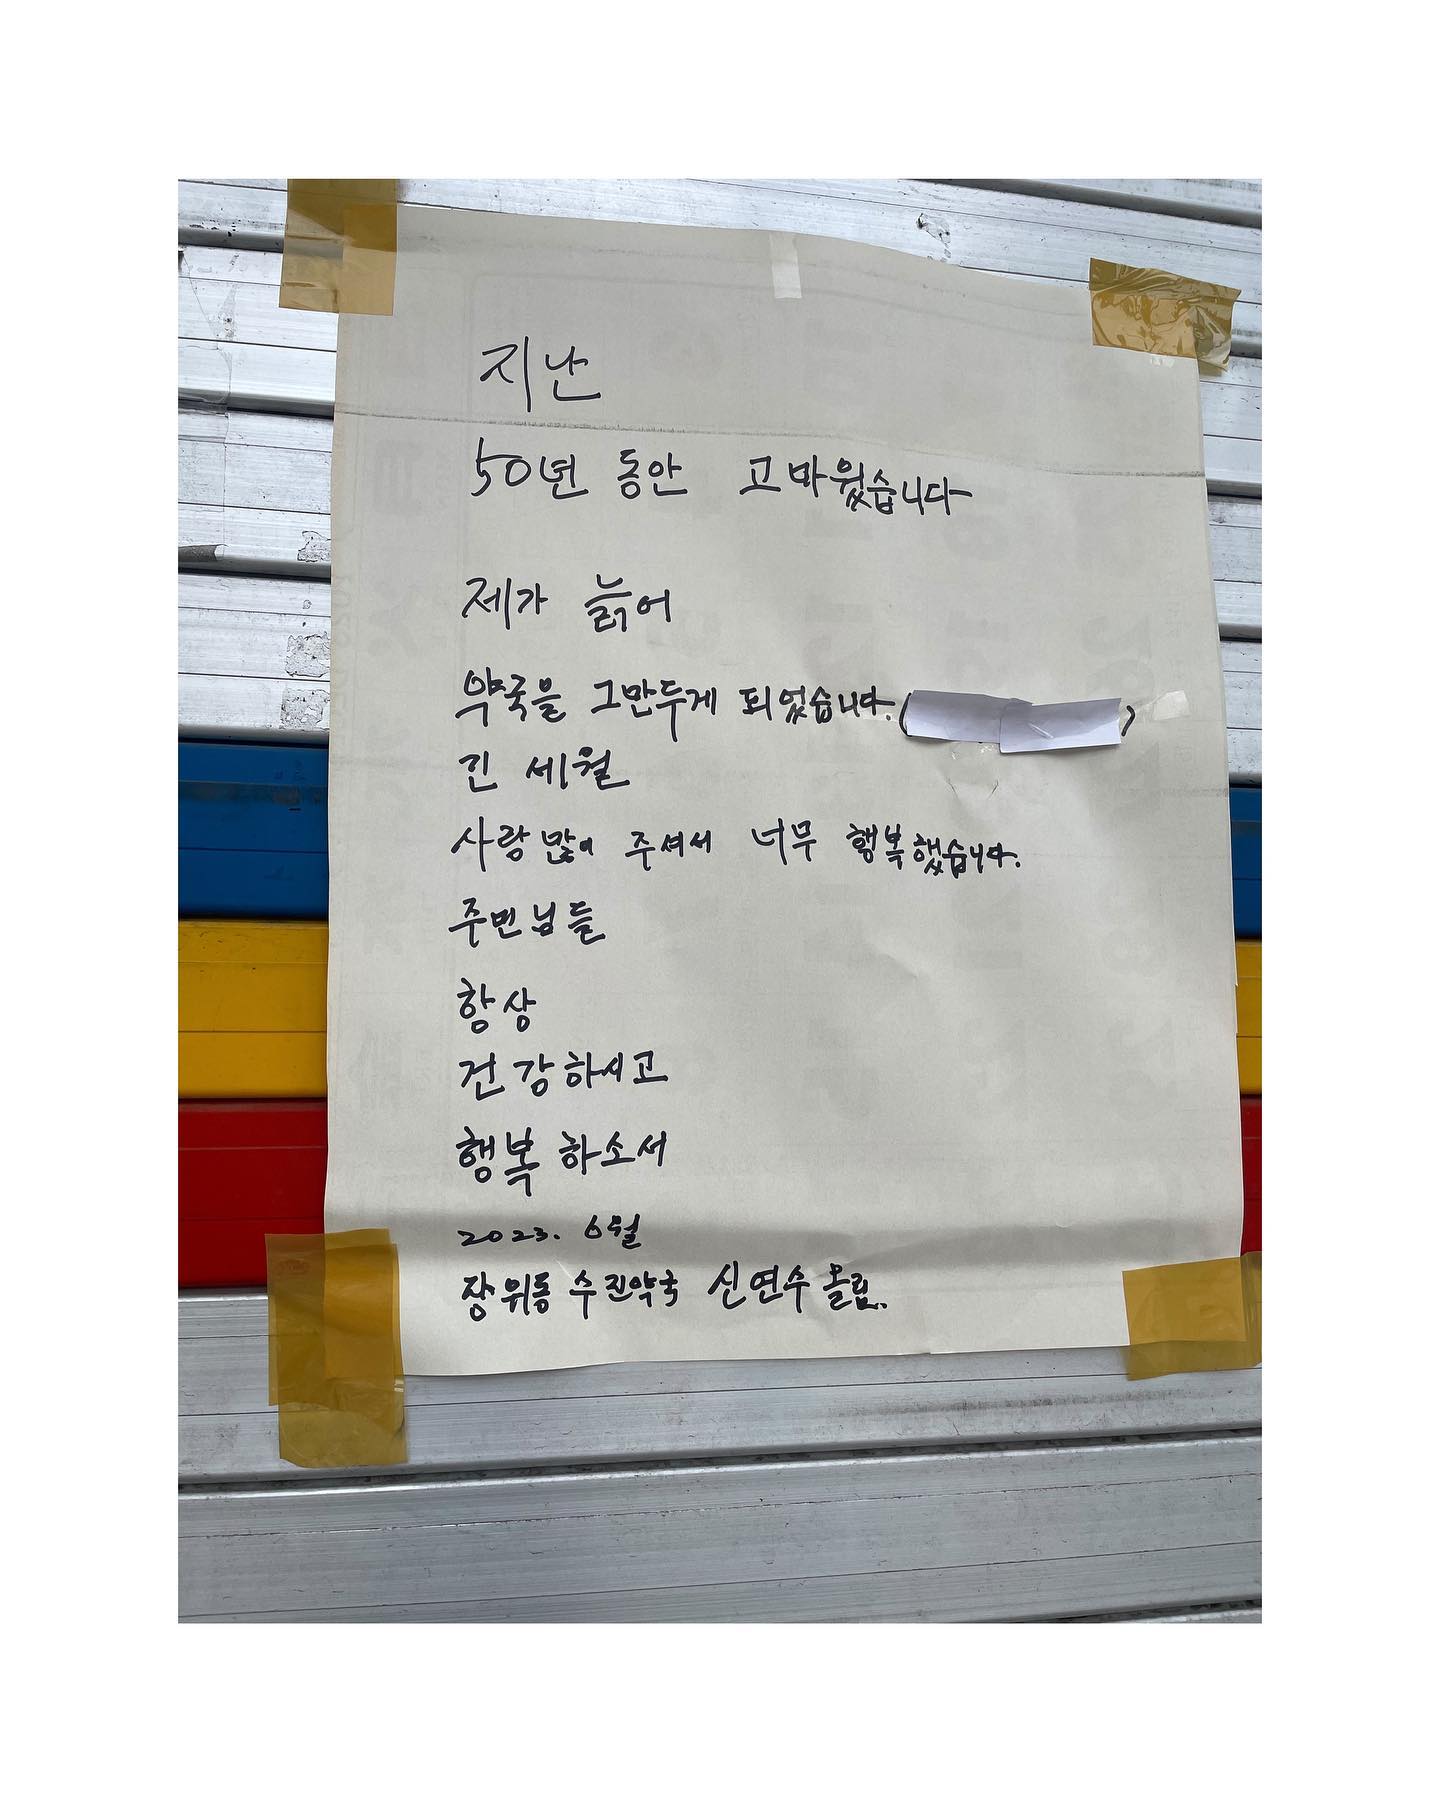 지난
50년 동안 고마웠습니다
제가 늙어
약국을 그만두게 되었습니다. ( )
긴 세월
사랑 많이 주셔서 너무 행복했습니다.
주민님들
항상
건강하시고
행복하소서
2023. 6월
장위동 수진약국 신연수 올림.